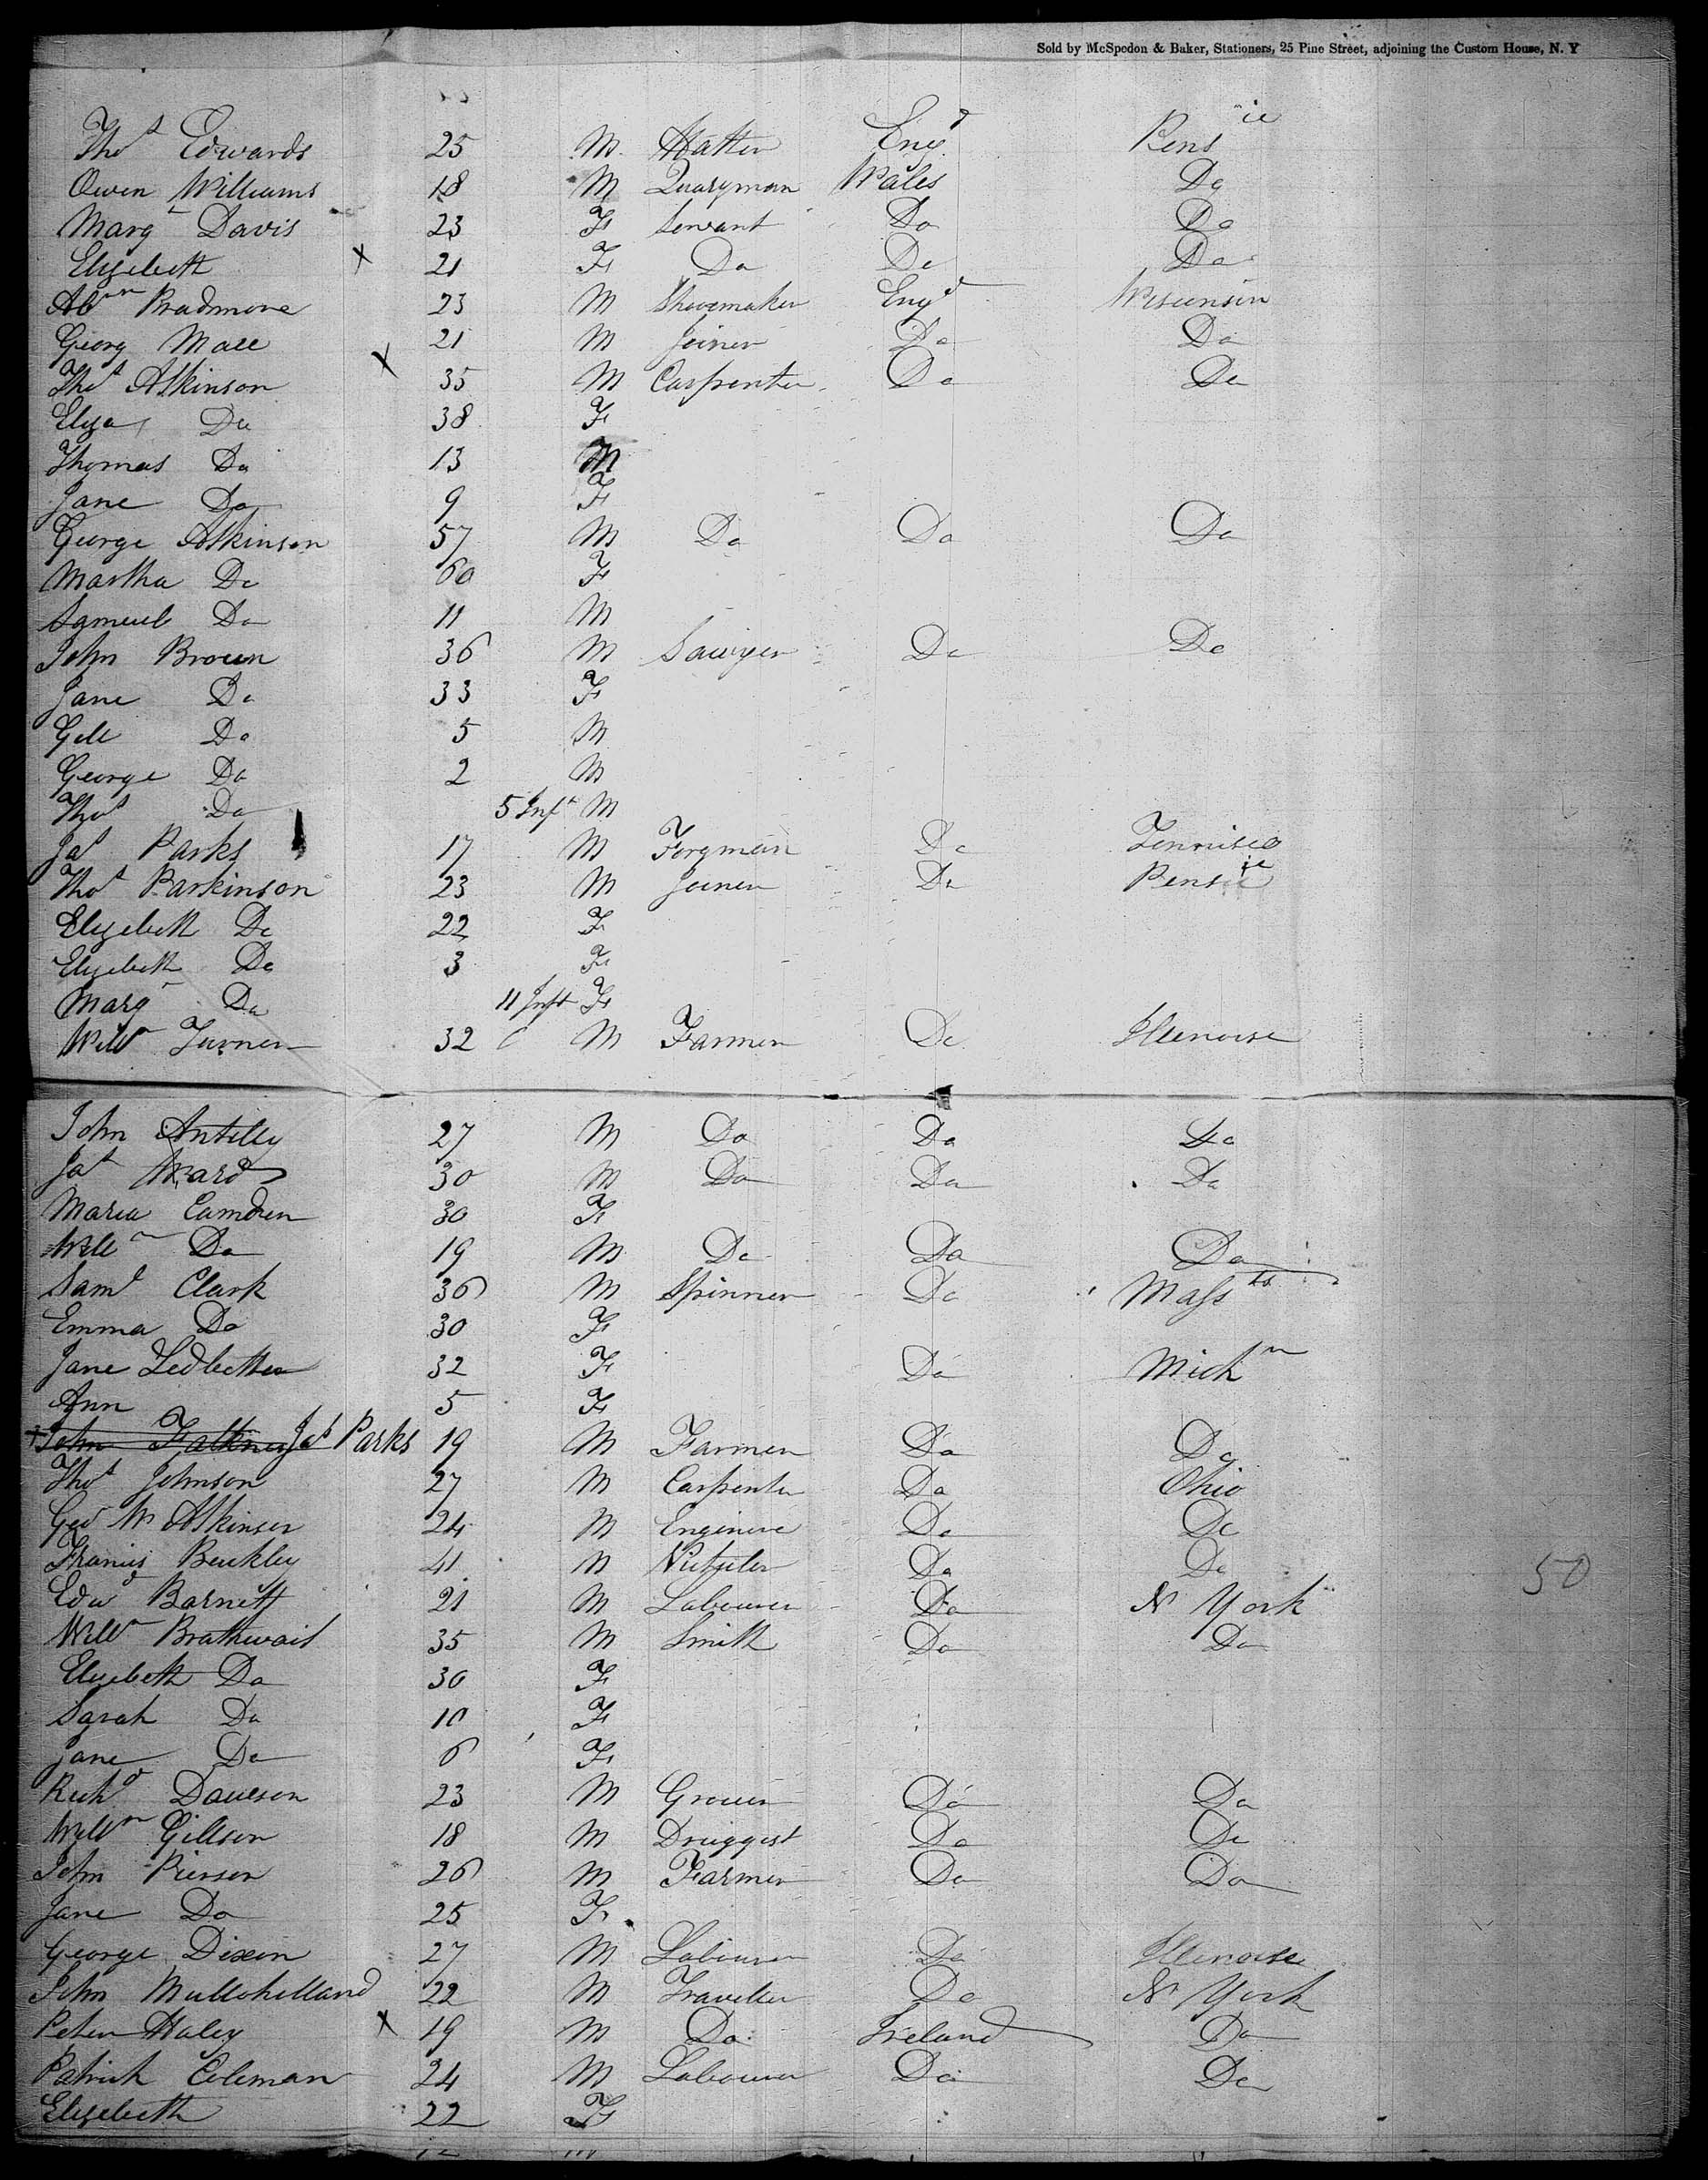 Sold by McSpedon & Baker, Stationers, 25 Pine Street, adjoining the Custom House, N. Y
Thos Edwards 25 M Hatter Engd Pensie
Owen Williams 18 M Quaryman Wales Do
Margt Davis 23 F Servant Do Do
Elizebeth x 21 F Do Do Do
Abrm Bradmore 23 M Shoemaker Engd Wisconsin
Georg Mace 21 M Joiner Do Do
Thos Atkinson x 35 M Carpenter Do Do
Eliza Do 38 F
Thomas Do 13 M
Jane Do 9 F
George Atkinson 57 M Do Do Do
Martha Do 60 F
Samuel Do 11 M
John Brown 36 M Sawyer Do Do
Jane Do 33 F
Do 5 M
George Do 2 M
Thos Do 5 Inft M
Jas Parks 17 M Forgman Do Tennisee
Thos Parkinson 23 M Joiner Do Pensie
Elizebeth Do 22 F
Elizebeth Do 3 F
Margt Do 11 Inft F
Willm Turner 32 M Farmer Do Illenoise
John Antilly 27 M Do Do Do
Jas Ward 30 M Do Do Do
Maria Camden 30 F
Willm Do 19 M Do Do Do
Saml Clark 36 M Spinner Do Massts
Emma Do 30 F
Jane Ledbetter 32 F Do Michn
Ann 5 F
+ John Faltner Jas Parks 19 M Farmer Do Do
Thos Johnson 27 M Carpenter Do Ohio
Geo W Atkinson 24 M Enginere Do Do
Francis Buckley 41 M Do Do
Edwd Barnett 21 M Labourer Do N York
Willm Brathwait 35 M Smith Do Do
Elizebeth Do 30 F
Sarah Do 10 F
Jane Do 6 F
Richd Daueson 23 M Grocer Do Do
Willm Gillson 18 M Druggist Do Do
John Pierson 26 M Farmer Do Do
Jane Do 25 F
George Dixon 27 M Labourer Do Illenoise
John Mullohilland 22 M Traveller Do N York
Peter Haley x 19 M Do Ireland Do
Patrick Coleman 24 M Labourer Do Do
Elizebeth 22 F
50